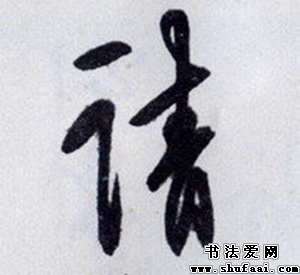 请
书法爱网
www.shufaai.com